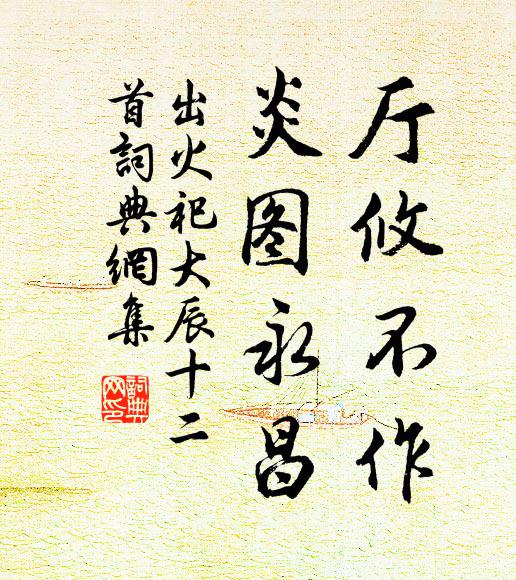 厅攸不作
炎图永昌
出火祀大辰十二
首詞典網集
詞典网印